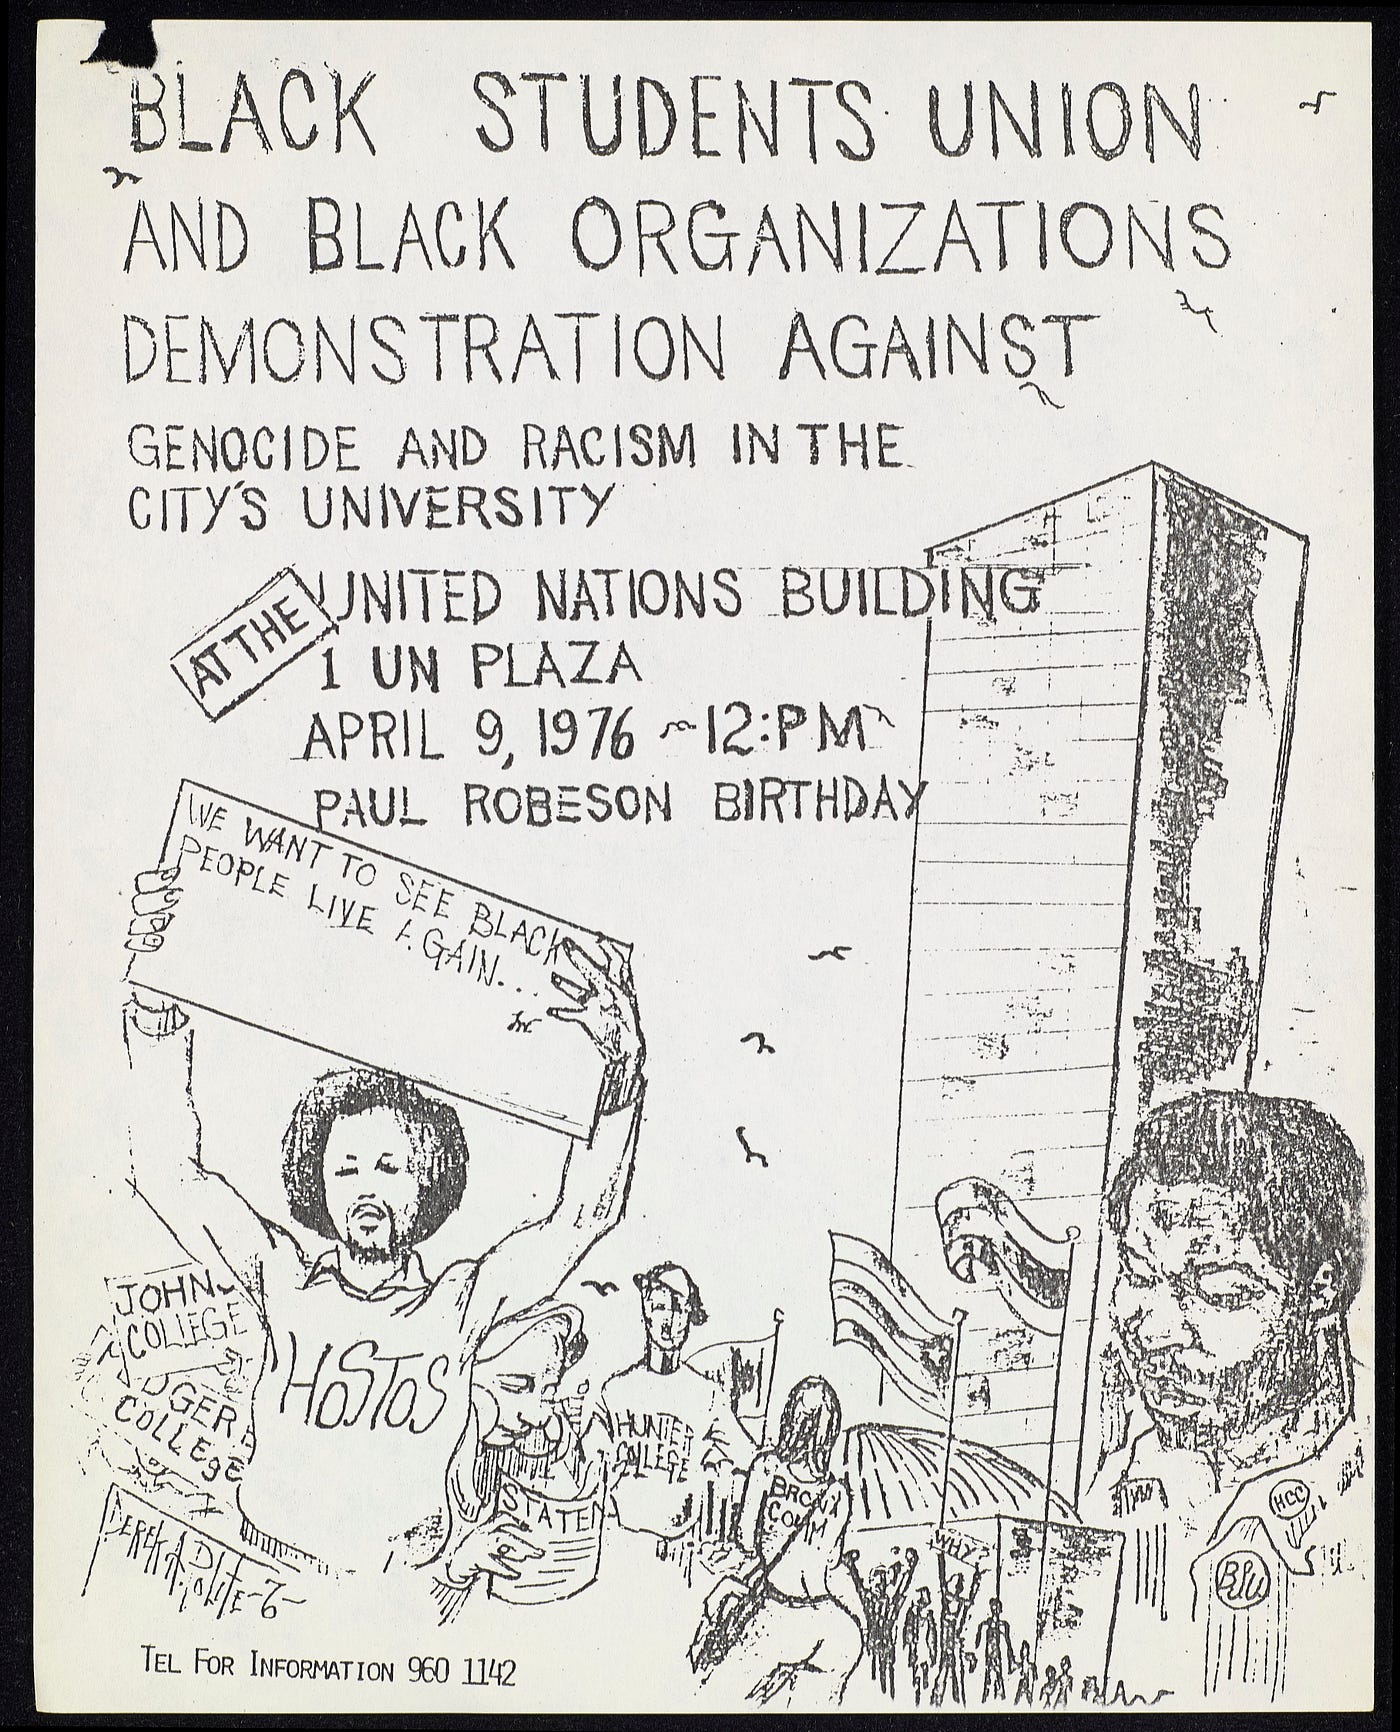 BLACK STUDENTS UNION
AND BLACK ORGANIZATIONS
DEMONSTRATION AGAINST
GENOCIDE AND RACISM IN THE
CITY'S UNIVERSITY
AT THE
UNITED NATIONS BUILDING
1 UN PLAZA
APRIL 9, 1976 ~ 12:PM
PAUL ROBESON BIRTHDAY
WE WANT TO SEE BLACK
PEOPLE LIVE AGAIN...
JOHN
COLLEGE
COLLEGE
HOSTOS
STATEN
HUNTER
COLLEGE
BRONX
COMM
WHY?
HCC
BSU
TEL FOR INFORMATION 960 1142